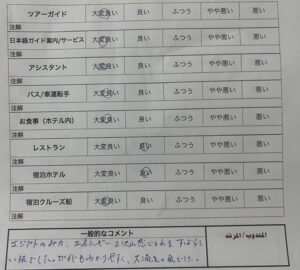 ツアーガイド 大変良い 良い ふつう やや悪い 悪い
注解
日本語ガイド案内/サービス 大変良い 良い ふつう やや悪い 悪い
注解
アシスタント 大変良い 良い ふつう やや悪い 悪い
注解
バス/車運転手 大変良い 良い ふつう やや悪い 悪い
注解
お食事（ホテル内） 大変良い 良い ふつう やや悪い 悪い
注解
レストラン 大変良い 良い ふつう やや悪い 悪い
注解
宿泊ホテル 大変良い 良い ふつう やや悪い 悪い
注解
宿泊クルーズ船 大変良い 良い ふつう やや悪い 悪い
注解
一般的なコメント المندوب/المرشد
エジプトのみ力、エネルギー 感じられる すばらし
い旅でした。ガイドもわかりやすく、大満足の旅でした。